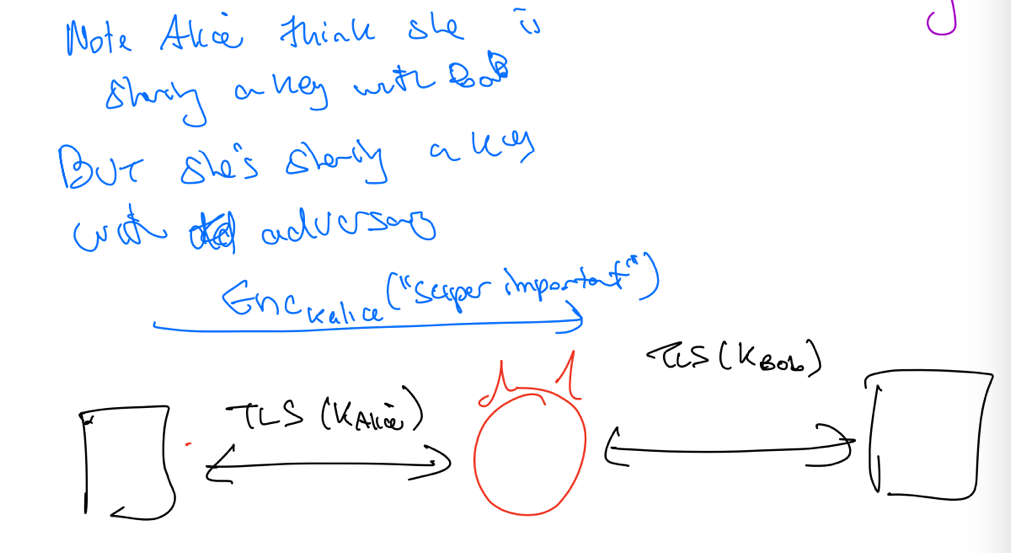 Note Alice think she is
sharing a key with Bob
BUT she's sharing a key
with adversary
Enc Kalice ("super important")
TLS (KBob)
TLS (KAlice)